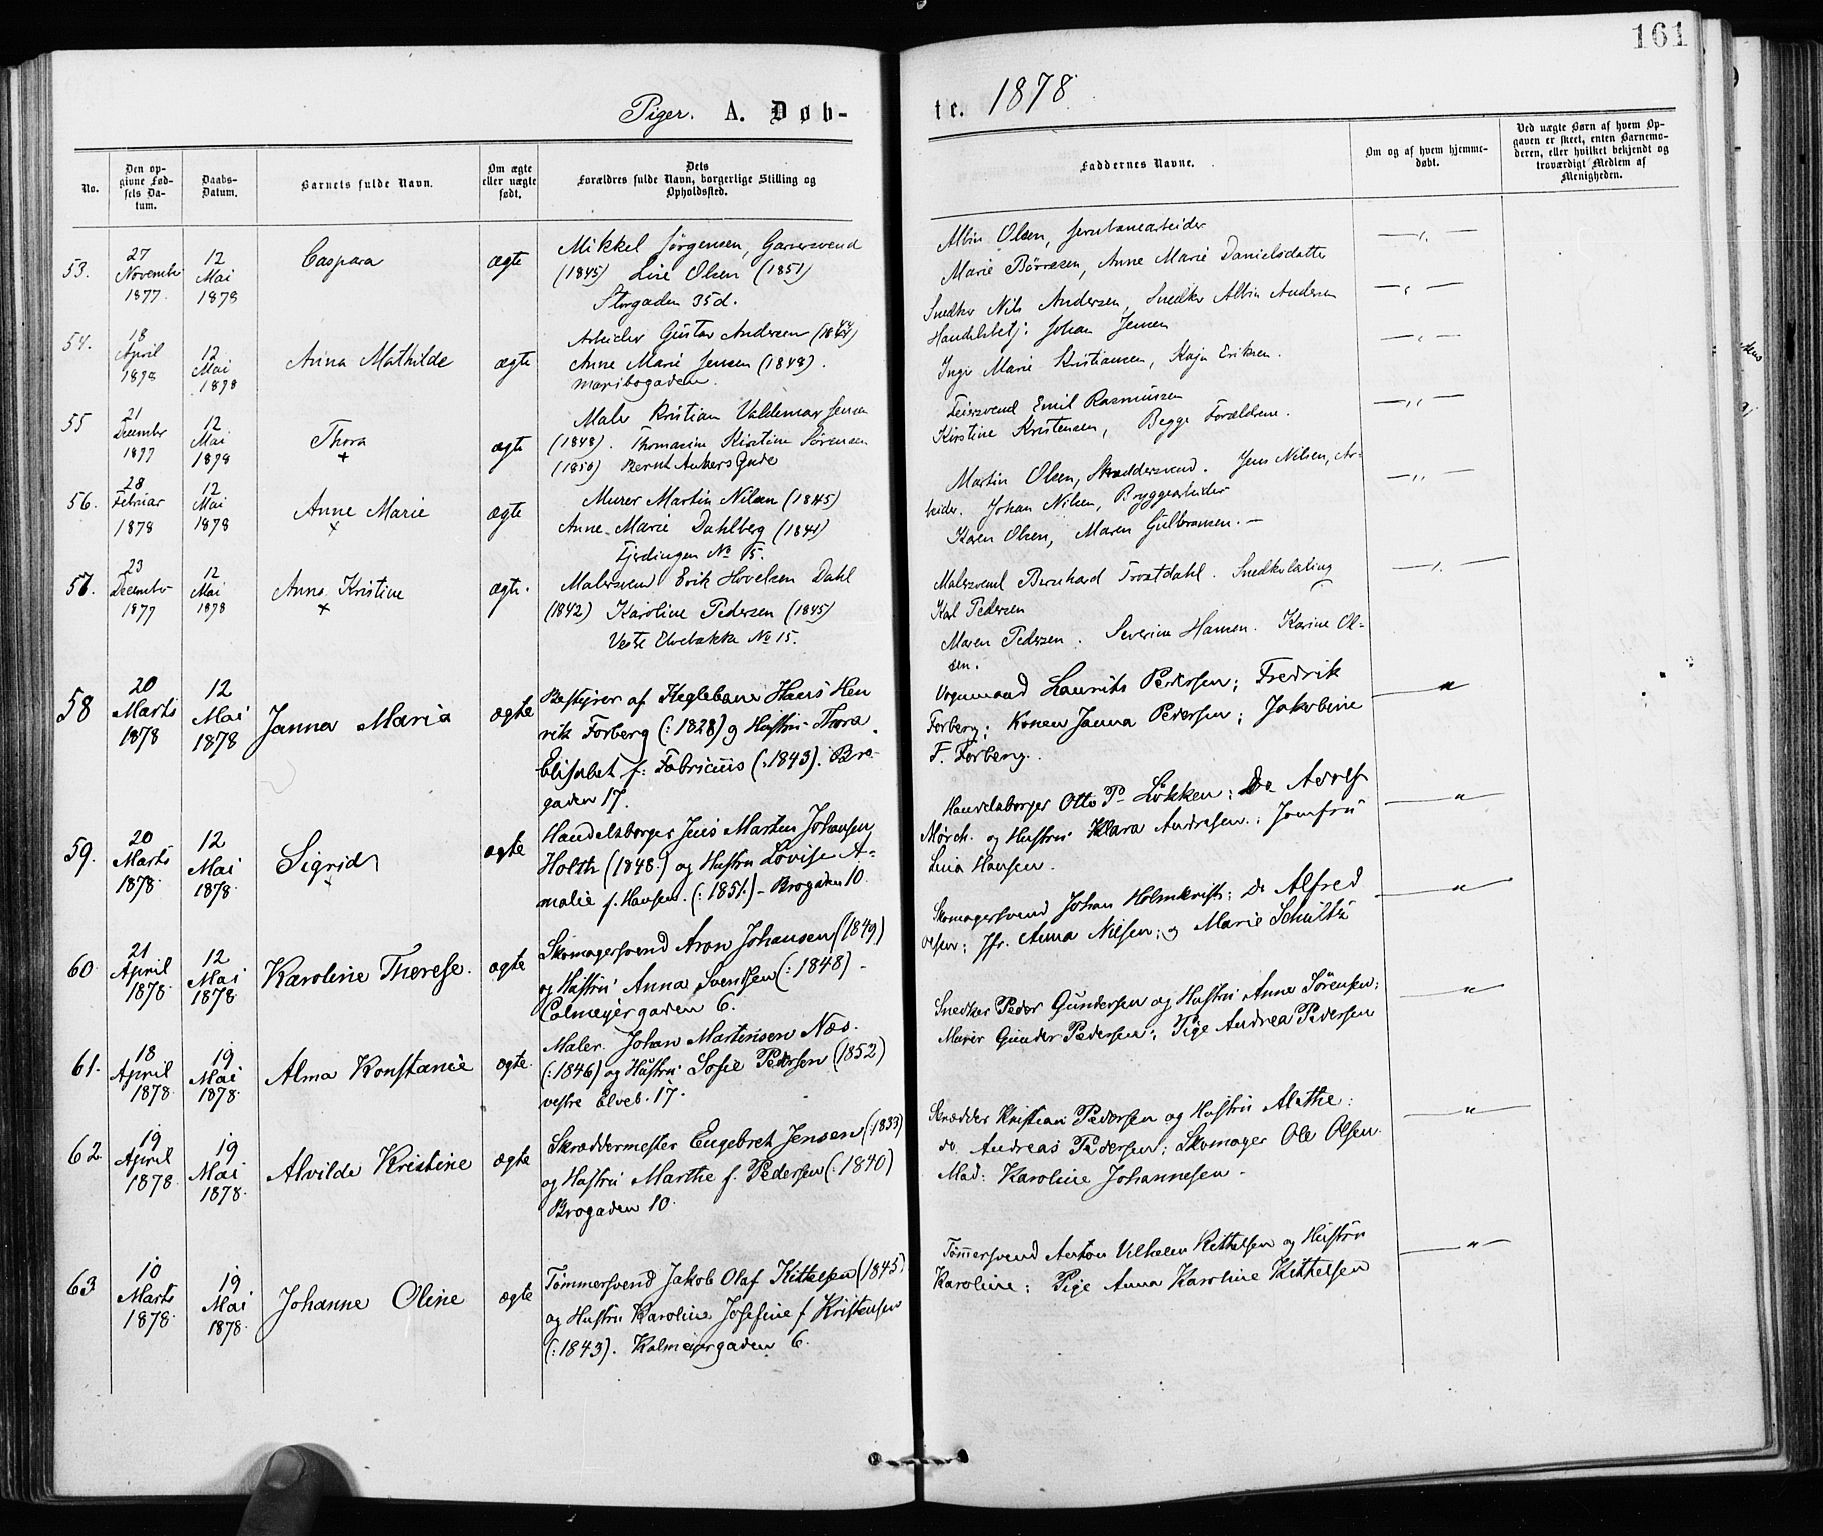 161
Piger. A. Døb-
te. 1878.
No.
Den op-
givne Fød-
sels Da-
tum.
Daabs-
Datum.
Barnets fulde Navn.
Om ægte
eller uægte
født.
Dets
Forældres fulde Navn, borgerlige Stilling og
Opholdssted.
Faddernes Navne.
Om og af hvem hjemme-
døbt.
Ved uægte Børn af hvem Op-
gaven er skeet, enten Barnemo-
deren, eller hvilket bekjendt og
troværdigt Medlem af
Menigheden.
53.
27
November
1877.
12
Mai
1878
Caspara
ægte
Mikkel Jørgensen, Garversvend
(1845) Lise Olsen (1851)
Storgaden 35d.
Albin Olsen, Jernbanearbeider
Marie Børresen, Anne Marie Danielsdatter
54.
18
April
1878
12
Mai
1878
Anna Mathilde
ægte
Arbeider Gustav Andersen
Anne Marie Jensen (1848).
Maribogaden.
Snedker Nils Andersen, Snedker Albin Andersen
Handelsbetj: Johan Jensen
Inge Marie Kristiansen, Kaja Eriksen.
55
21
December
1877
12
Mai
1878
Thora
+
ægte
Maler Kristian Valdemar Jensen
(1848). Thomasine Kirstine Sørensen
(1850) Bernt Ankers Gade
Feiersvend Emil Rasmussen
Kirstine Kristensen, Begge Forældrene.
56.
28
Februar
1878
12
Mai
1878
Anne Marie
+
ægte
Murer Martin Nilsen (1845)
Anne Marie Dahlberg (1841)
Fjerdingen No 15.
Martin Olsen, Skræddersvend. Jens Nilsen, Ar-
beider. Johan Nilsen, Bryggearbeider
Karen Olsen, Maren Gulbransen. —
57.
23
December
1877
12
Mai
1878
Anna Kristine
+
ægte.
Malersvend Erik Hovelsen Dahl
(1842) Karoline Pedersen (1845)
Vestr Elvebakke No 15.
Malersvend Bernhard Trostdahl. Snedkerlærling
Karl Pedersen
Maren Pedersen. Severine Hansen. Karine Ol-
sen.
58
20
Marts
1878
12
Mai
1878
Janna Maria
ægte
Bestyrer af Keglebane Hans Hen
rik Forberg (: 1828) og Hustru Thora
Elisabet f: Fabricius (:1843). Bro-
gaden 17.
Vognmand Laurits Pedersen; Fredrik
Forberg; Konen Janna Pedersen; Jakobine
F. Forberg.
59.
20
Marts
1878.
12
Mai
1878.
Sigrid
+
ægte
Handelsborger Jens Marten Johansen
Holth (1848.) og Hustru Lovise A-
malie f. Hansen. (: 1851.) - Brogaden 10.
Handelsborger Otto P. Løkken; Do Adolf
Mørch. og Hustru Klara Andresen.; Jomfru
Lina Hansen.
60.
21
April
1878.
12
Mai
1878.
Karoline Therese.
ægte
Skomagersvend Aron Johansen (1849)
og Hustru Anna Svensen (: 1848) -
Calmeyergaden 6.
Skomagersvend Johan Holmkvist; Do Alfred
Olsen; Jfr. Anna Nilsen; og Marie Schultz
61.
18
April
1878.
19
Mai
1878.
Alma Konstance
ægte.
Maler. Johan Martinsen Næs.
(: 1846) og Hustru Sofie Pedersen (1852)
vestre Elveb. 17.
Snedker Peder Gundersen og Hustru Anne Sørensen;
Murer Gunder Pedersen; Pige Andrea Pedersen
62.
19
April
1878.
19
Mai
1878.
Alvilde Kristine
ægte
Skræddermester Engebret Jensen (:1833)
og Hustru Marthe f. Pedersen (: 1840)
Brogaden 10.
Skrædder Kristian Pedersen og Hustru Alethe:
do. Andreas Pedersen; Skomager Ole Olsen
Mad: Karoline Johannesen.
63
10
Marts
1878.
19
Mai
1878.
Johanne Oline
ægte
Tømmersvend Jakob Olaf Kittelsen (1845)
og Hustru Karoline Josefine f Kristensen
(: 1843). Kalmeiergaden 6.
Tømmersvend Anton Vilhelm Kittelsen og Hustru
Karoline: Pige Anna Karoline Kittelsen